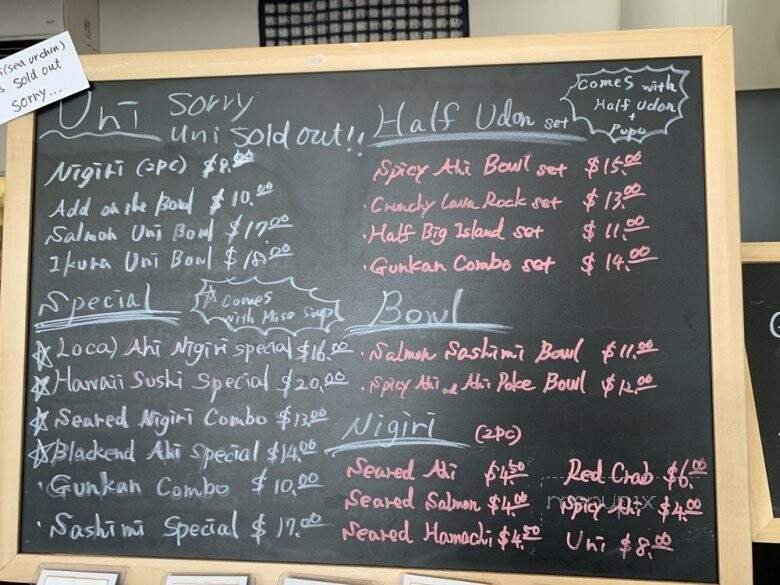 i(sea urchin)
s sold out
sorry...
Uni sorry
uni sold out!!
Nigiri (2pc) $8.00
Add on the Bowl $10.00
Salmon Uni Bowl $17.00
Ikura Uni Bowl $18.00
Special
☆ comes
with Miso Soup
☆ Local Ahi Nigiri special $16.00
☆ Hawaii Sushi Special $20.00
☆ Seared Nigiri Combo $13.00
☆ Blackend Ahi Special $14.00
· Gunkan Combo $10.00
· Sashimi Special $17.00
Half Udon set
comes with
Half Udon
+
Pupu
Spicy Ahi Bowl set $15.00
· Crunchy Lava Rock set $13.00
· Half Big Island set $11.00
· Gunkan Combo set $14.00
Bowl
· Salmon Sashimi Bowl $11.00
· Spicy Ahi & Ahi Poke Bowl $12.00
Nigiri (2pc)
Seared Ahi $4.50
Seared Salmon $4.00
Seared Hamachi $4.50
Red Crab $6.00
Spicy Ahi $4.00
Uni $8.00
menupix